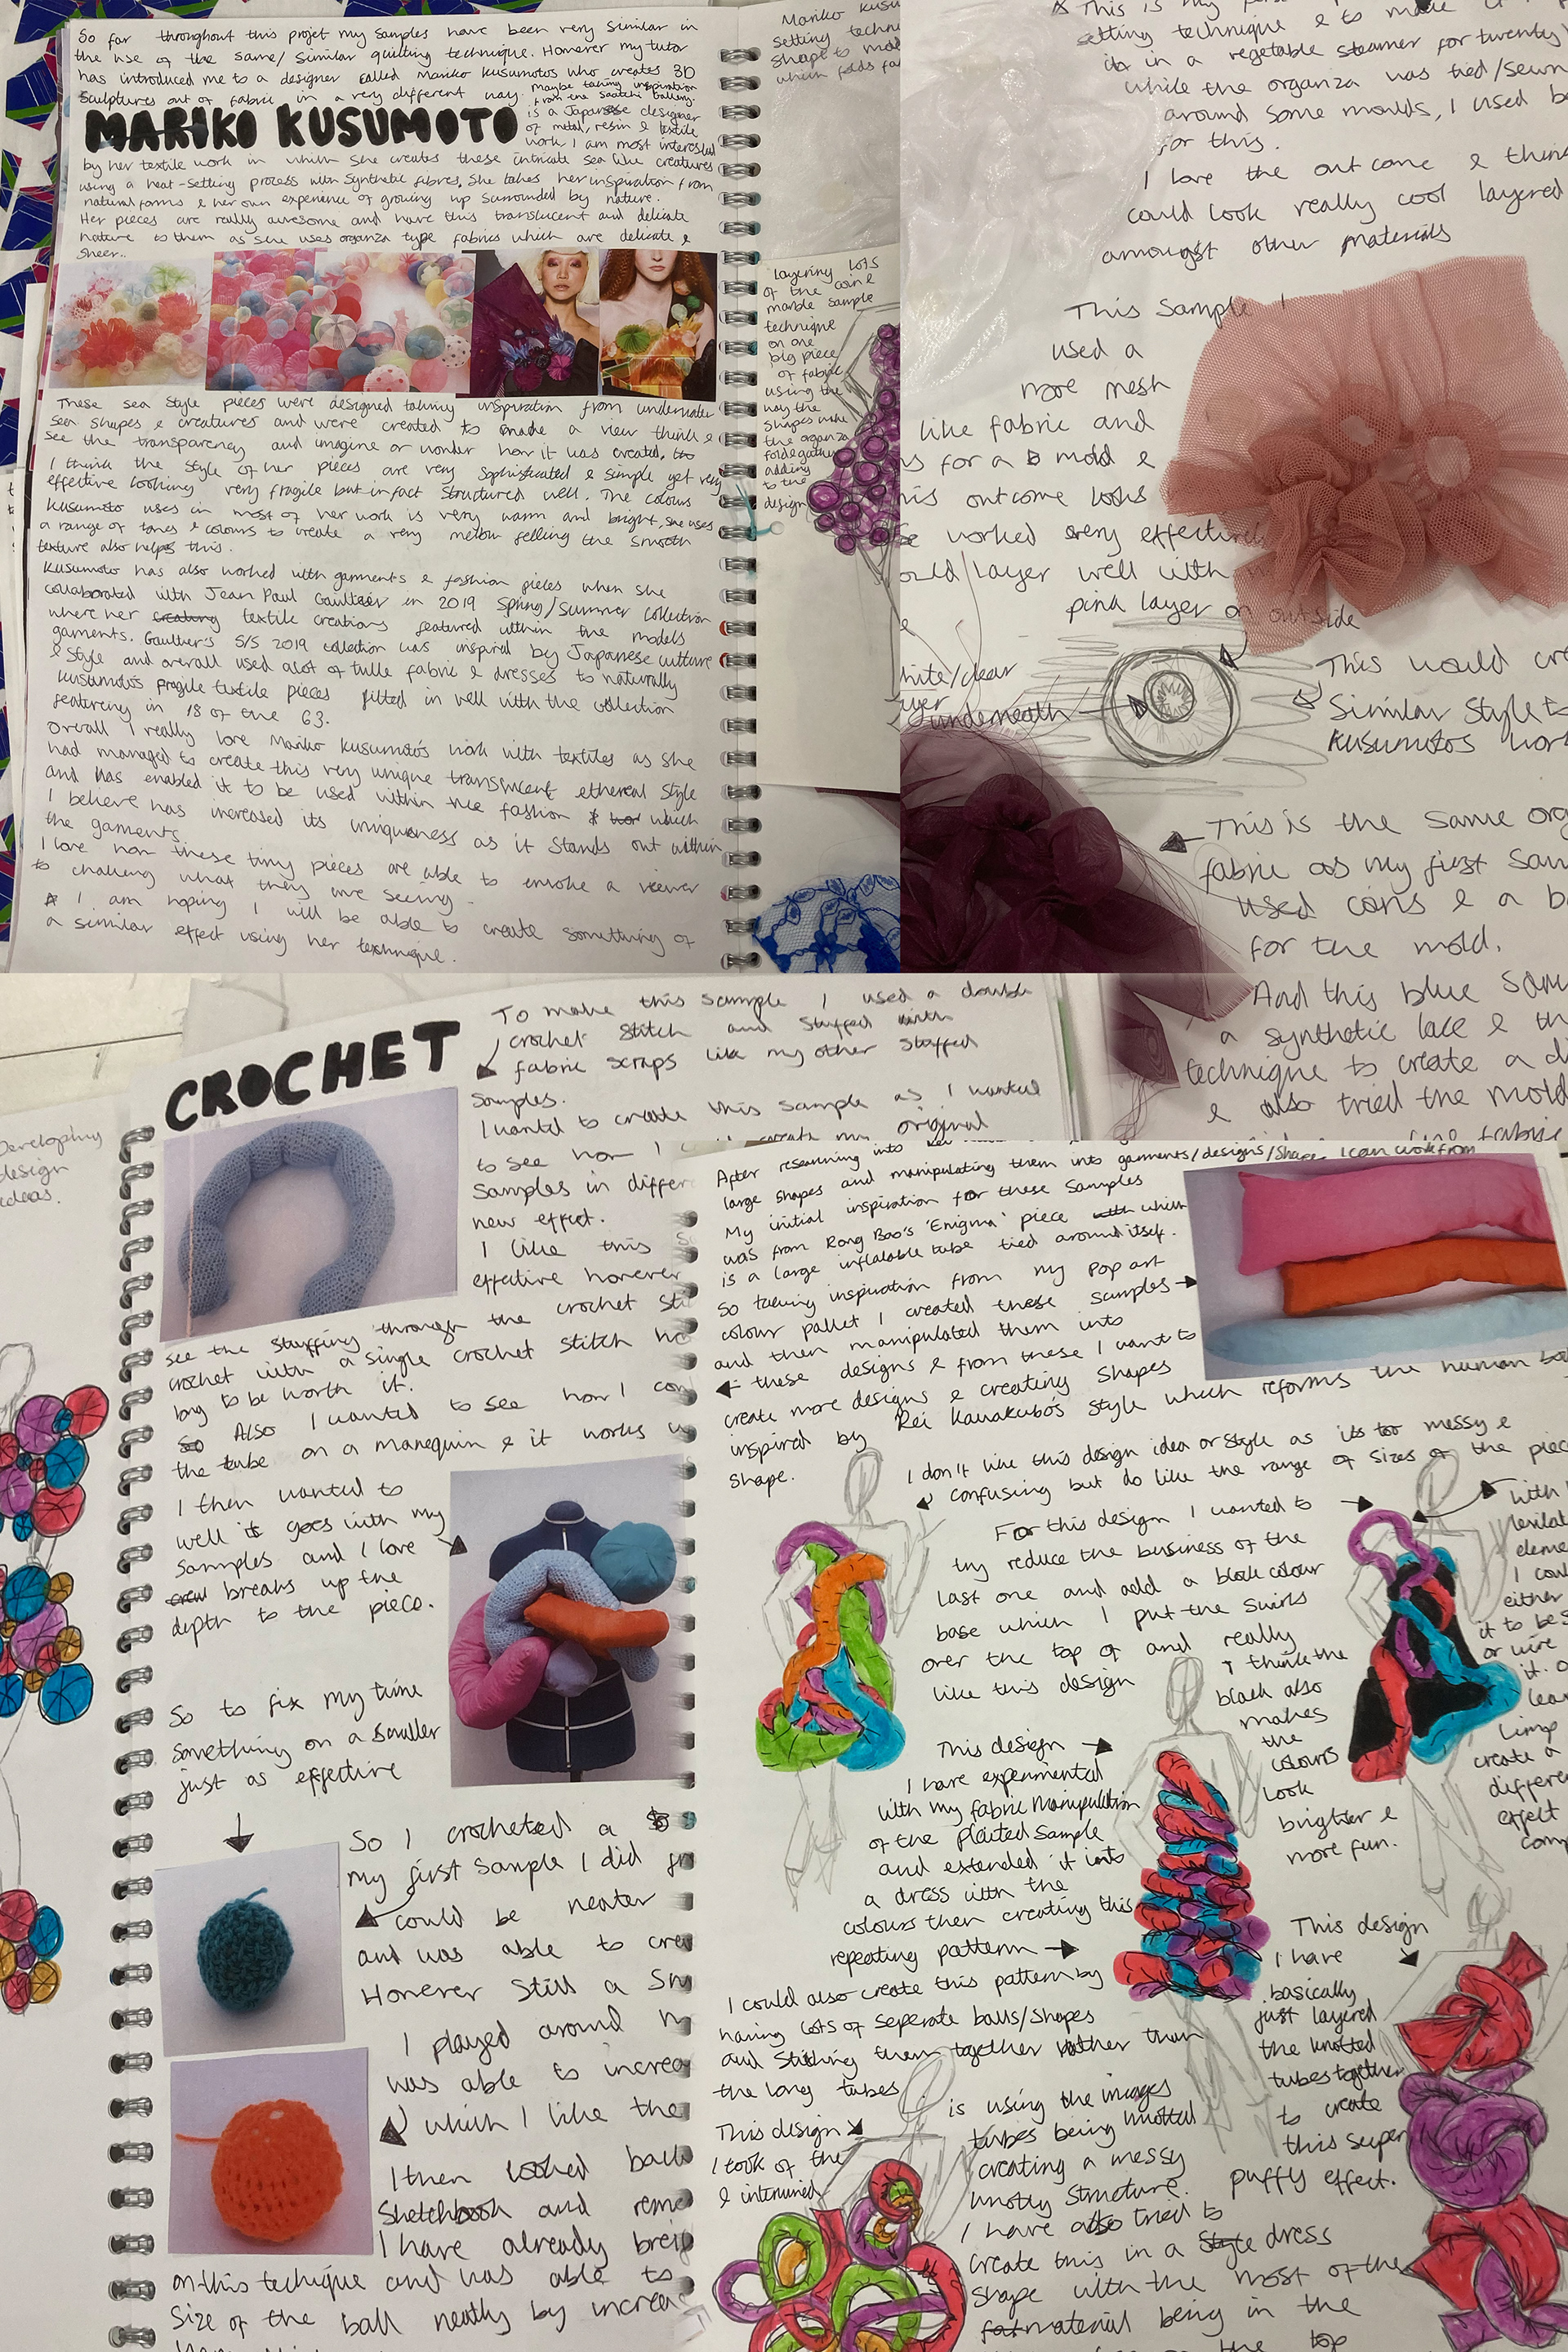 So far throughout this projet my samples have been very similar in
the use of the same/ similar quilting technique. However my tutor
has introduced me to a designer called Mariko Kusumotos who creates 3D
sculptures out of fabric in a very different way. Maybe taking inspiration
from the Saatchi Gallery.
MARIKO KUSUMOTO
is a Japanese designer
of metal, resin & textile
work I am most interested
by her textile work in which she creates these intricate sea like creatures
using a heat-setting process with synthetic fibres. She takes her inspiration from
natural forms & her own experience of growing up surrounded by nature.
Her pieces are really awesome and have this translucent and delicate
nature to them as she uses organza type fabrics which are delicate &
sheer..
These sea style pieces were designed taking inspiration from underwater
sea shapes & creatures and were created to make a view think &
see the transparency and imagine or wonder how it was created.
I think the style of her pieces are very sophisticated & simple yet very
effective looking very fragile but in fact structured well. The colours
Kusumoto uses in most of her work is very warm and bright, she uses
a range of tones & colours to create a very mellow felling the smooth
texture also helps this.
Kusumoto has also worked with garments & fashion pieces when she
collaborated with Jean Paul Gaultier in 2019 Spring/Summer Collection
where her creating textile creations featured within the models
garments. Gaultier's S/S 2019 collection was inspired by Japanese culture
& style and overall used alot of tulle fabric & dresses to naturally
Kusumoto's fragile textile pieces fitted in well with the collection
featuring in 18 of the 63.
Overall I really love Mariko Kusumoto's work with textiles as she
had managed to create this very unique translucent ethereal style
and has enabled it to be used within the fashion which
I believe has increased its uniqueness as it stands out within
the garments.
I love how these tiny pieces are able to envoke a viewer
to challeng what they are seeing.
I am hoping I will be able to create something of
a similar effect using her technique.
Mariko Kusu
setting techn
shape to mol
which folds fa
layering lots
of the coin &
marble sample
technique
on one
big piece
of fabric
using the
way the
shapes make
the organza
fold & gather
adding
to the
design
This is my
setting technique & to make it
it in a vegetable steamer for twenty
while the organza was tied/sewn
around some moulds, I used b
for this.
I love the outcome & think
could look really cool layered
amoungst other materials
This sample I
used a
more mesh
like fabric and
s for a mold &
his outcome looks
worked very effectively
ould layer well with
pink layer on outside
hite/clear
ayer
underneath
This would cre
similar style to
Kusumotos work
This is the same org
fabric as my first sam
used coins & a b
for the mold.
And this blue sam
a synthetic lace & th
technique to create a di
& also tried the mold
fabric
Developing
design
ideas.
CROCHET
To make this sample I used a double
crochet stitch and stuffed with
fabric scraps like my other stuffed
samples.
I wanted to create this sample as I wanted
to see how I create my original
samples in differ
new effect.
I like this s
effective however
see the stuffing through the crochet sti
crochet with a single crochet stitch ho
long to be worth it.
So Also I wanted to see how I co
the tube on a manequin & it works w
I then wanted to
well it goes with my
samples and I love
breaks up the
depth to the piece.
So to fix my time
something on a smaller
just as effective
So I crocheted a
my first sample I did
could be neater
and was able to crea
However still a sm
I played around
was able to increa
which I like the
I then looked back
sketchbook and reme
I have already
on this techique and was able to
size of the ball neatly by increa
After researching into
large shapes and manipulating them into garments/designs/shape I can work from
My initial inspiration for these samples
was from Rong Bao's 'Enigma' piece which
is a large inflatable tube tied around itself.
So taking inspiration from my Pop art
colour pallet I created these samples
and then manipulated them into
these designs & from these I want to
create more designs & creating shapes
inspired by Rei Kawakubo's style which reforms the human bo
shape.
I don't like this design idea or style as its too messy &
confusing but do like the range of sizes of the piec
For this design I wanted to
try reduce the business of the
last one and add a block colour
base which I put the swirls
over the top of and really
like this design
I think the
black also
makes
the
colours
look
brighter &
more fun.
With
levitat
eleme
I coul
either
it to be s
or wire
it. o
leav
limp
create a
differe
effect
comp
This design
I have experimental
with my fabric manipulation
of the plaited sample
and extended it into
a dress with the
colours then creating this
repeating pattern
I could also create this pattern by
having lots of seperate balls/shapes
and stitching them together rather than
the long tubes
This design
I have
basically
just layered
the knotted
tubes together
to create
this super
puffy effect.
This design
I took of the
& intwined
is using the images
tubes being knotted
creating a messy
knotty structure.
I have also tried to
create this in a style dress
shape with the most of the
material being in the
the top